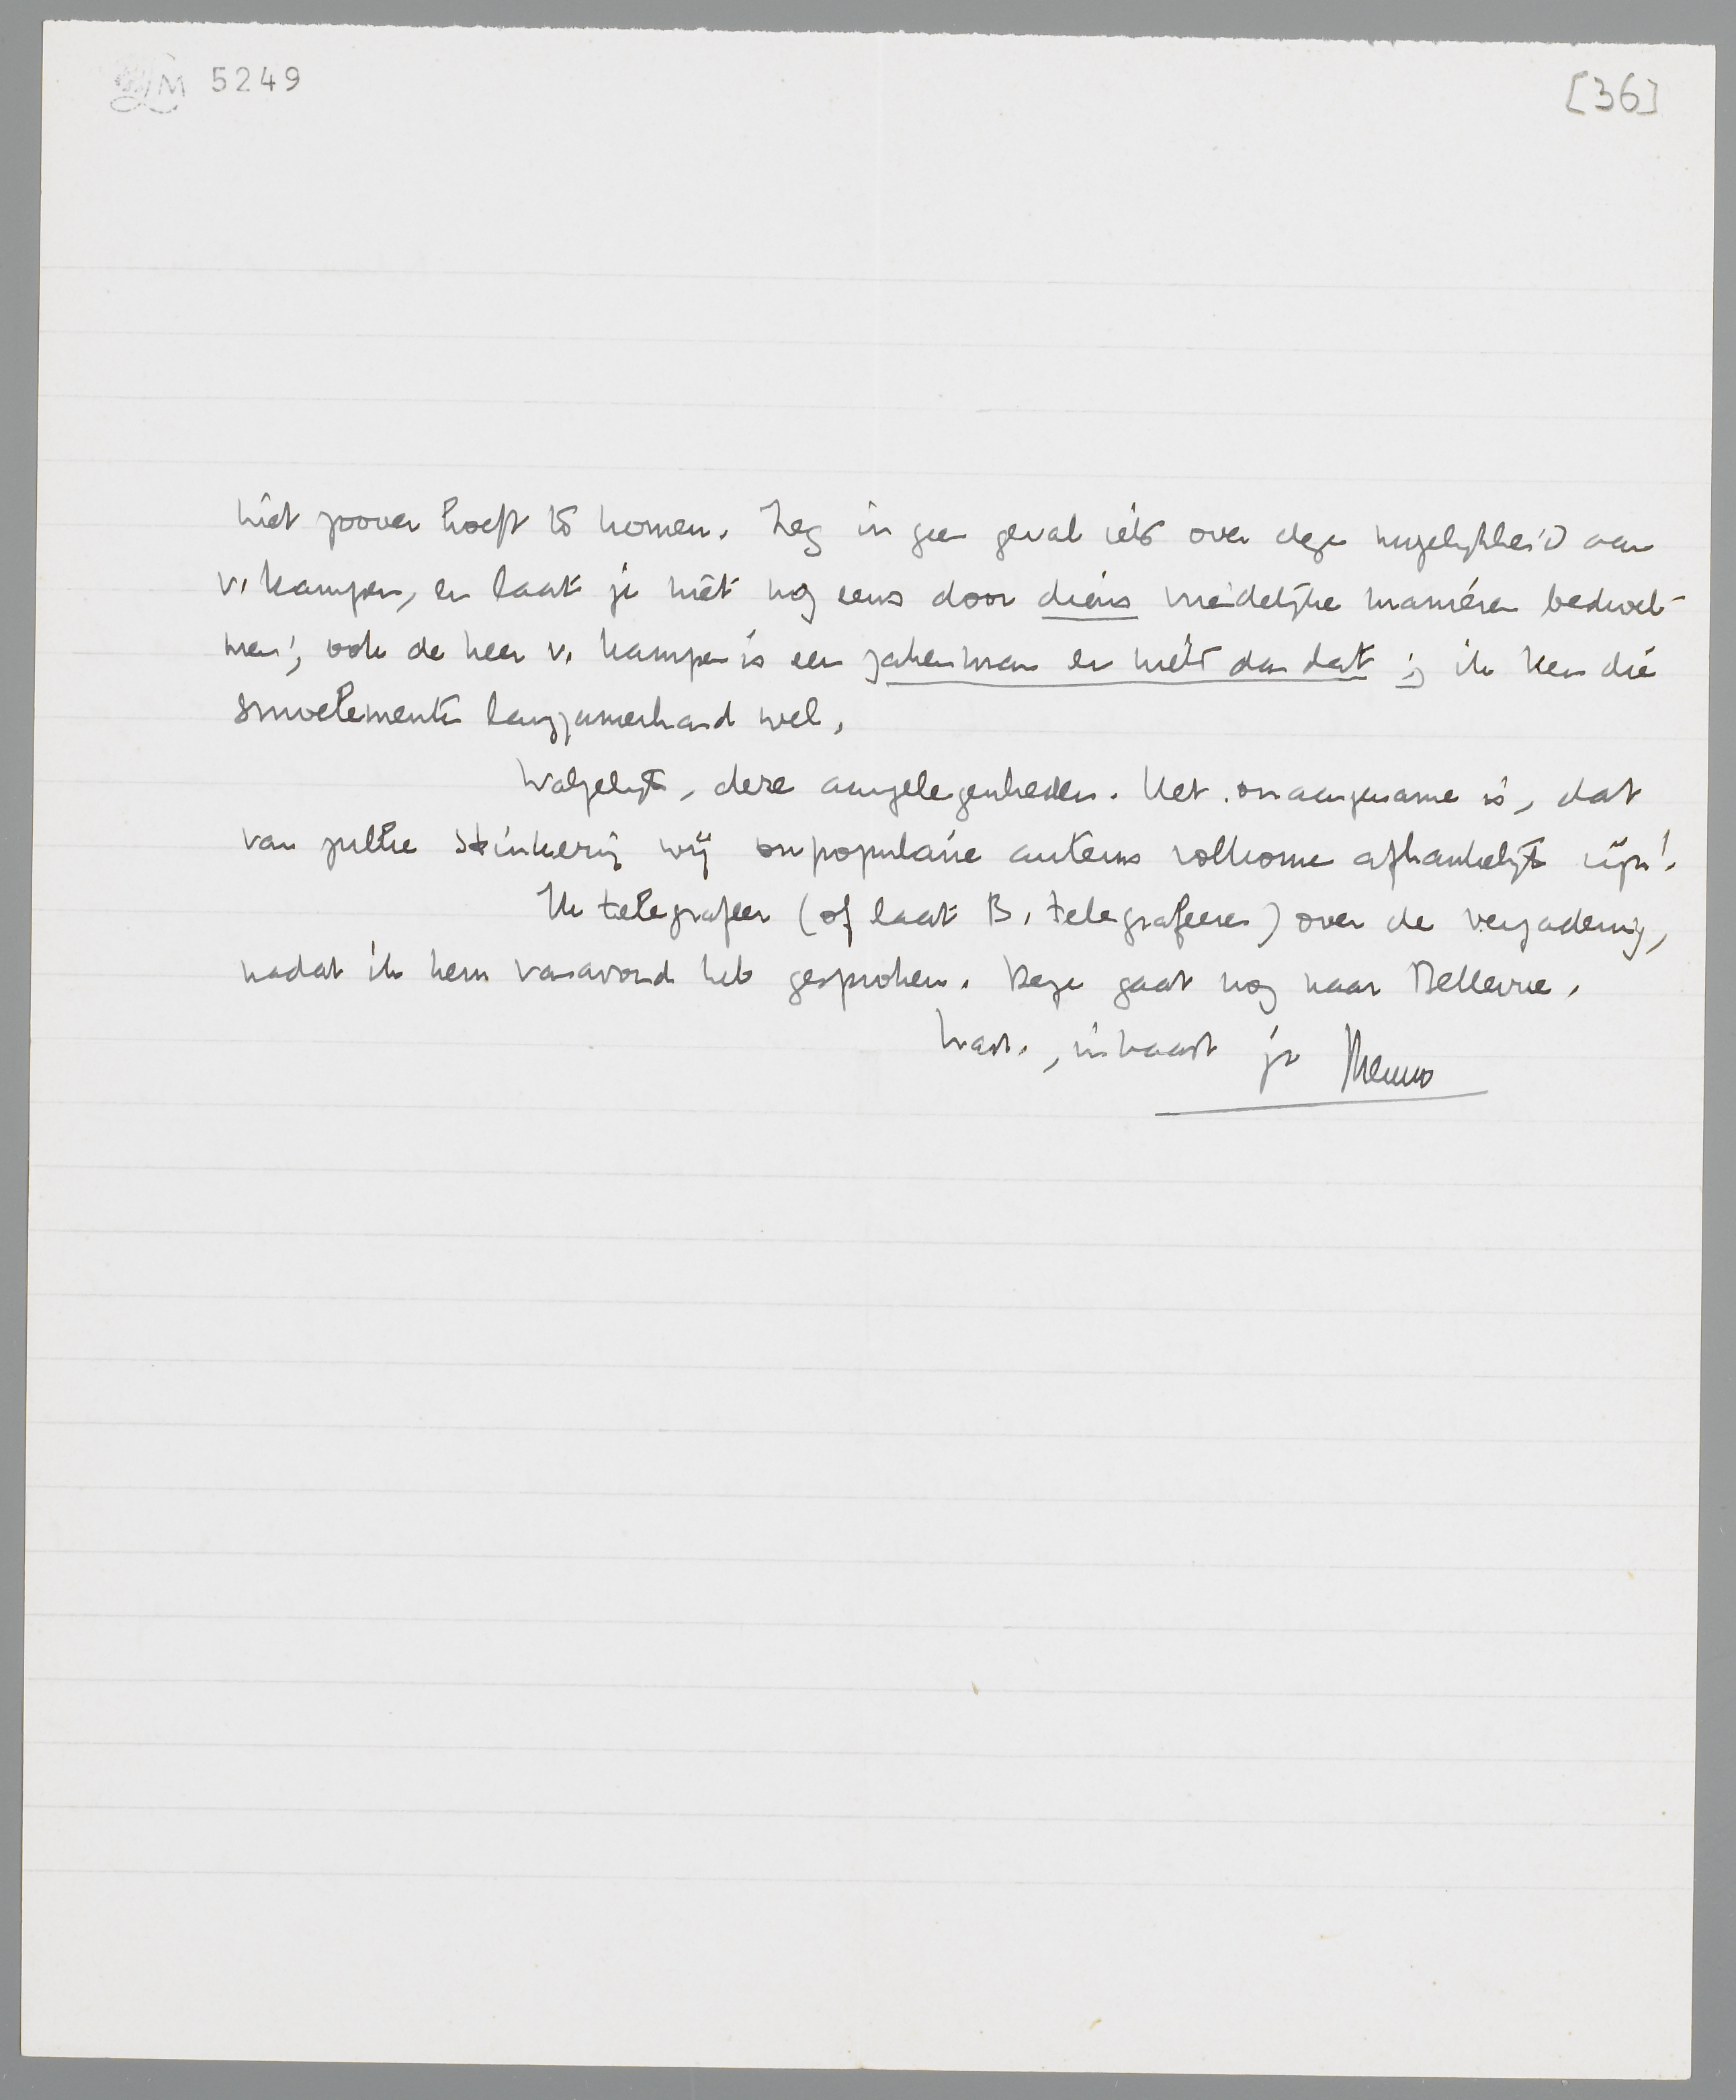 LM 5249
[36]
niet zoover hoeft te komen. Zeg in geen geval iets over deze mogelijkheid aan
v. Kampen, en laat je niet nog eens door diens vriendelijke manieren bedwel-
men; ook de heer v. Kampen is een zakenman en niets dan dat; ik ken die
smoelementen langzamerhand wel.
Walgelijk, deze aangelegenheden. Het onaangename is, dat
van zulke stinkerij wij onpopulaire auteurs volkomen afhankelijk zijn!
Ik telegrafeer (of laat B. telegrafeeren) over de vergadering,
nadat ik hem vanavond heb gesproken. Deze gaat nog naar Bellevue.
Hart., in haast je Menno